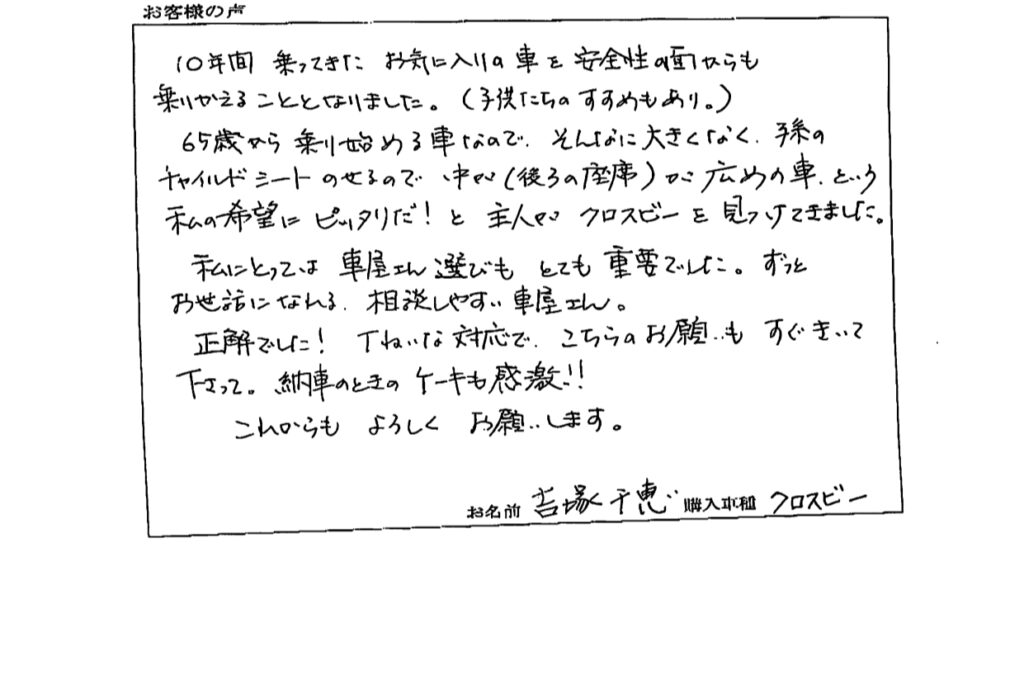 お客様の声
10年間 乗ってきた お気に入りの車を 安全性の面からも
乗りかえることとなりました。(子供たちのすすめもあり。)
65歳から 乗り始める車なので、そんなに大きくなく、孫の
チャイルドシートのせるので 中が(後ろの座席)が 広めの車、という
私の希望に ピッタリだ!と 主人が クロスビーを 見つけてきました。
私にとっては 車屋さん選びも とても 重要でした。ずっと
お世話になれる、相談しやすい車屋さん。
正解でした! ていねいな対応で、こちらのお願いも すぐきいて
下さって。納車のときの ケーキも感激!!
これからも よろしく お願いします。
お名前 吉塚千恵 購入車種 クロスビー